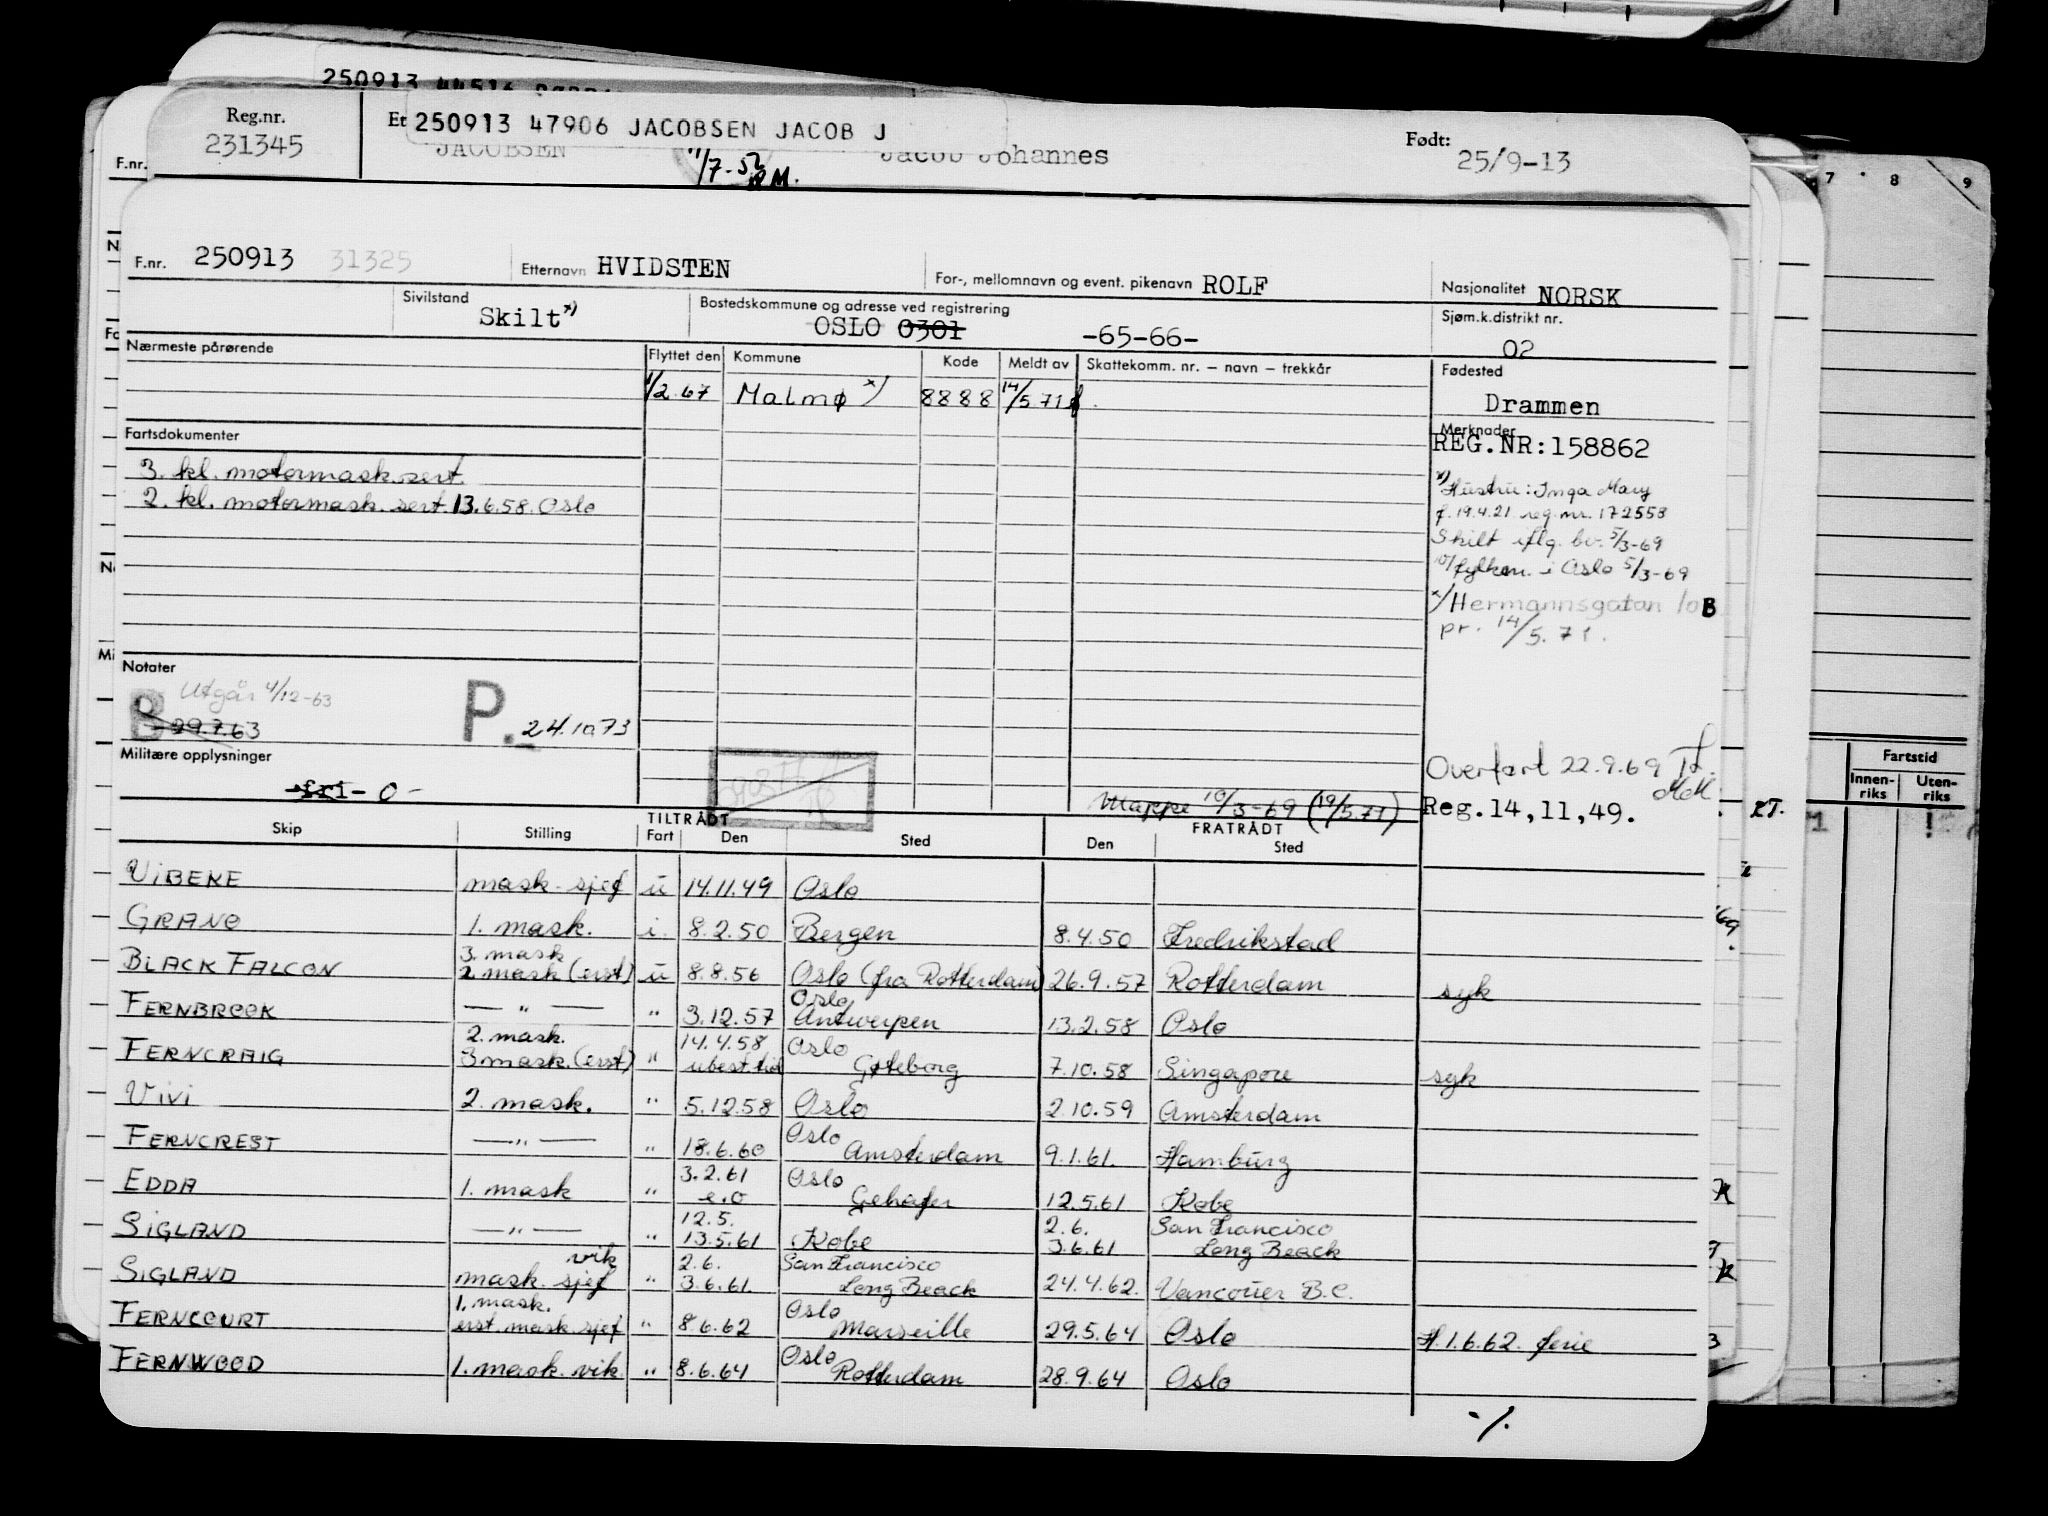 250913 44516
Reg.nr.
231345
Et 250913 47906 JACOBSEN JACOB J
JACOBSEN Jacob Johannes
11/7-52
Født:
25/9-13
F.nr.
7 8 9
F.nr. 250913 31325
Etternavn HVIDSTEN
For-, mellomnavn og event. pikenavn ROLF
Nasjonalitet NORSK
Sivilstand
Skilt x)
Bostedskommune og adresse ved registrering
OSLO 0301 -65-66-
Sjøm.k.distrikt nr.
02
Nærmeste pårørende
Flyttet den Kommune Kode Meldt av Skattekomm. nr. – navn – trekkår
1/2.67 Malmø x) 8888 14/5.71
Fødested
Drammen
Merknader
REG.NR:158862
x) Hustru: Inga Mary
f. 19.4.21 reg.nr. 172558
Skilt iflg. bv. 5/3-69
fylkesm. i Oslo 5/3-69
x) Hermannsgatan 10B
pr. 14/5.71.
Fartsdokumenter
3. kl. motormask.sert.
2. kl. motormask.sert. 13.6.58. Oslo
Notater
Utgår 4/12-63
B 29.7.63
P. 24.10.73
Militære opplysninger
-fri- 0-
Overført 22.9.69
Mappe 10/3-69 (19/5.71)
Reg.14,11,49.
Fartstid
Innen-
riks
Uten-
riks
Skip Stilling TILTRÅDT Fart Den Sted FRATRÅDT Den Sted
VIBEKE mask.sjef u 14.11.49 Oslo
GRANO 1. mask. i. 8.2.50 Bergen 8.4.50 Fredrikstad
3. mask
BLACK FALCON 2. mask (erst) u 8.8.56 Oslo (fra Rotterdam) 26.9.57 Rotterdam syk
Oslo
FERNBROOK — " — " 3.12.57 Antwerpen 13.2.58 Oslo
2. mask. 14.4.58 Oslo
FERNCRAIG 3 mask. (erst) " ubest.tid Gøteborg 7.10.58 Singapore syk
VIVI 2. mask. " 5.12.58 Oslo 2.10.59 Amsterdam
Oslo
FERNCREST — " — " 18.6.60 Amsterdam 9.1.61. Hamburg
3.2.61 Oslo
EDDA 1. mask " e.o Gehafen 12.5.61 Kobe
12.5. 2.6. San Francisco
SIGLAND — " — " 13.5.61 Kobe 3.6.61 Long Beach
vik 2.6. San Francisco
SIGLAND mask. sjef " 3.6.61. Long Beach 24.4.62. Vancouver B.C.
1. mask. Oslo
FERNCOURT erst. mask.sjef " 8.6.62 Marseille 29.5.64 Oslo H.1.6.62. ferie
Oslo
FERNWOOD 1. mask. vik. " 8.6.64 Rotterdam 28.9.64 Oslo
-/.